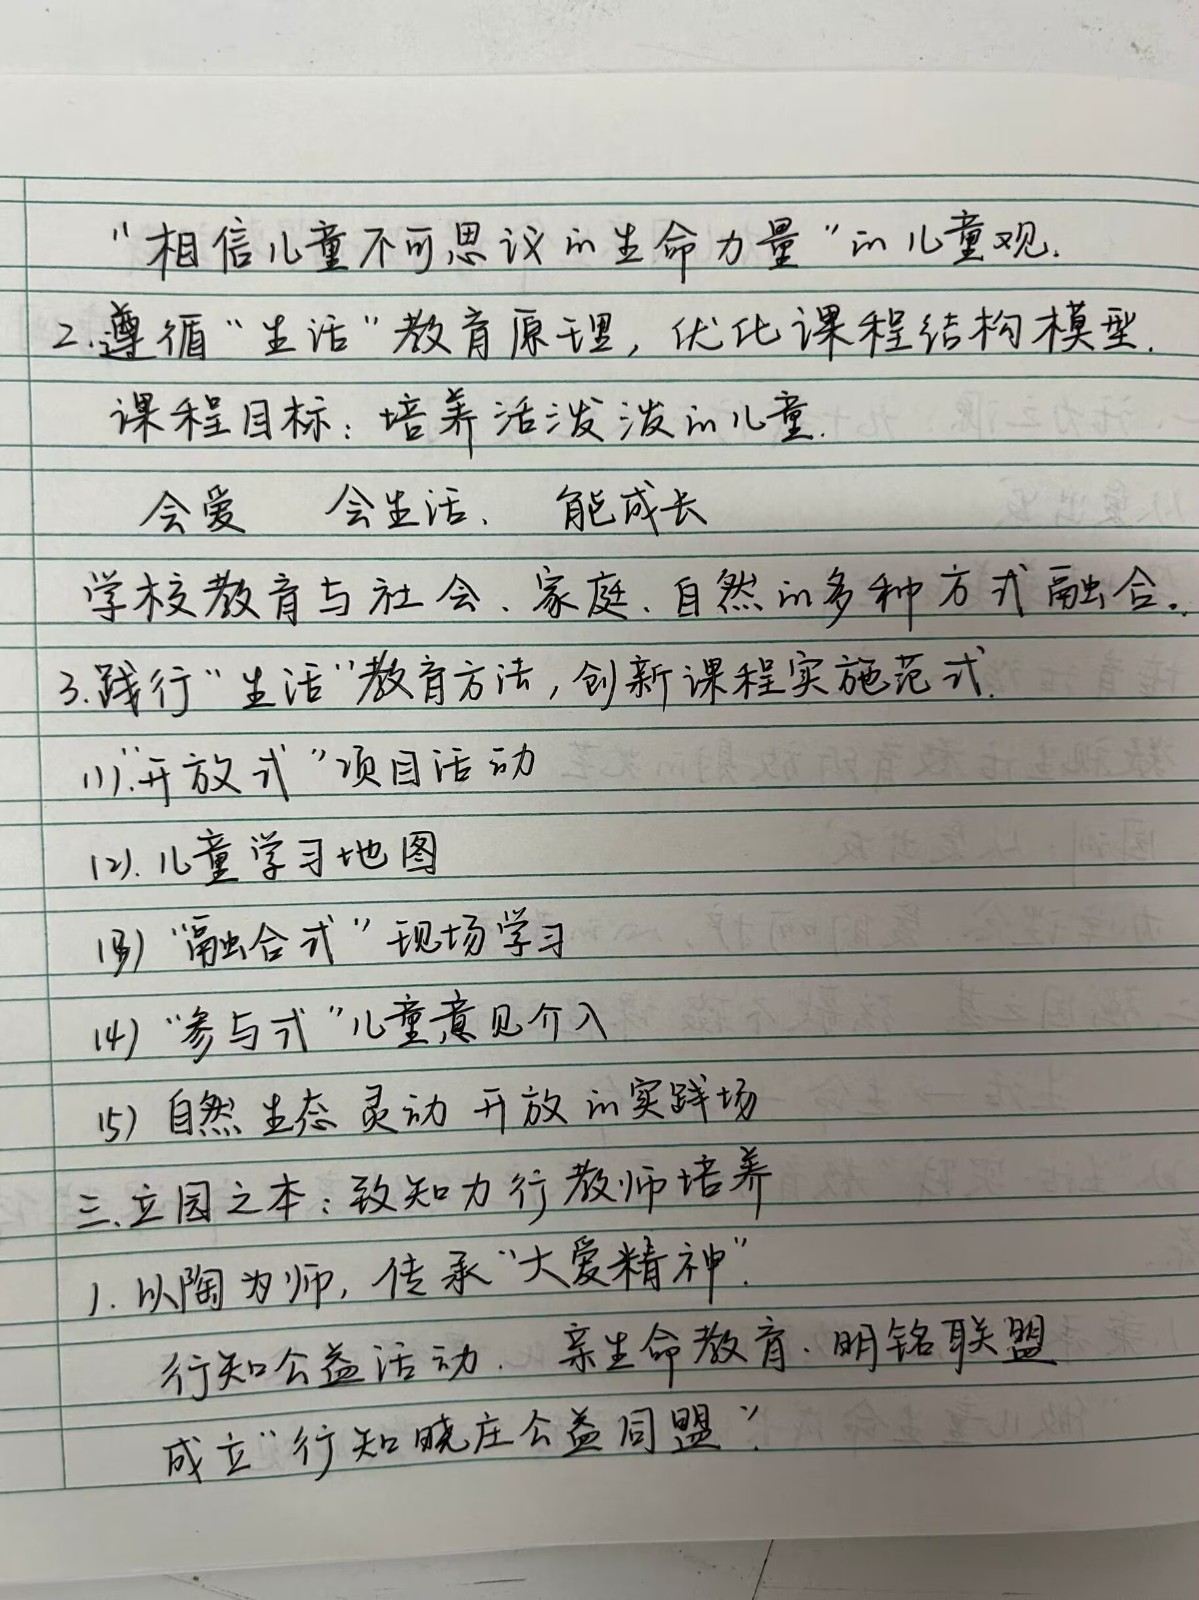 “相信儿童不可思议的生命力量”的儿童观.
2.遵循“生活”教育原理,优化课程结构模型.
课程目标:培养活泼泼的儿童.
会爱 会生活、 能成长
学校教育与社会、家庭、自然的多种方式融合。
3.践行“生活”教育方法,创新课程实施范式.
(1).“开放式”项目活动
(2).儿童学习地图
(3)“融合式”现场学习
(4)“参与式”儿童意见介入
(5)自然生态灵动开放的实践场
三.立园之本:致知力行教师培养
1.以陶为师,传承“大爱精神”.
行知公益活动、亲生命教育、明铭联盟
成立“行知晓庄公益同盟”.